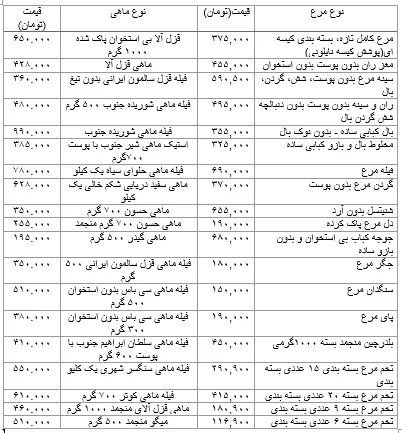 نوع مرغ	قیمت(تومان)	نوع ماهی	قیمت (تومان)
مرغ کامل تازه، بسته بندی کیسه ای(پوشش کیسه نایلونی)	۳۷۵,۰۰۰	قزل آلا بی استخوان پاک شده ۱۰۰۰ گرم	۶۵۰,۰۰۰
مغز ران بدون پوست بدون استخوان	۴۵۵,۰۰۰	ماهی قزل آلا	۴۲۸,۰۰۰
سینه مرغ بدون پوست، شش، گردن، بال	۵۹۰,۵۰۰	فیله قزل سالمون ایرانی بدون تیغ	۳۶۰,۰۰۰
ران و سینه بدون پوست بدون دنبالچه شش گردن بال	۴۹۵,۰۰۰	فیله ماهی شوریده جنوب ۵۰۰ گرم	۴۸۰,۰۰۰
بال کبابی ساده - بدون نوک بال	۳۵۵,۰۰۰	فیله ماهی شوریده جنوب	۹۹۰,۰۰۰
مخلوط بال و بازو کبابی ساده	۳۲۵,۰۰۰	استیک ماهی شیر جنوب با پوست ۷۰۰گرم	۳۸۵,۰۰۰
فیله مرغ	۶۹۰,۰۰۰	فیله ماهی حلوای سیاه یک کیلو	۷۸۰,۰۰۰
گردن مرغ بدون پوست	۳۷۰,۰۰۰	ماهی سفید دریایی شکم خالی یک کیلو	۶۲۸,۰۰۰
شنیتسل بدون آرد	۶۵۵,۰۰۰	ماهی حسون ۷۰۰ گرم	۳۵۰,۰۰۰
دل مرغ پاک کرده	۱۹۰,۰۰۰	ماهی حسون ۷۰۰ گرم منجمد	۲۵۵,۰۰۰
جوجه کباب بی استخوان و بدون بازو ساده	۶۸۰,۰۰۰	ماهی گیدر ۵۰۰ گرم	۱۹۵,۰۰۰
جگر مرغ	۱۸۰,۰۰۰	فیله ماهی قزل سالمون ایرانی ۵۰۰ گرم	۳۵۰,۰۰۰
سنگدان مرغ	۱۵۰,۰۰۰	فیله ماهی سی باس بدون استخوان ۵۰۰ گرم	۵۱۰,۰۰۰
پای مرغ	۱۹۰,۰۰۰	فیله ماهی سی باس بدون استخوان ۳۰۰ گرم	۳۸۰,۰۰۰
بلدرچین منجمد بسته ۱۰۰۰گرمی	۴۵۰,۰۰۰	فیله ماهی سلطان ابراهیم جنوب با پوست ۶۰۰ گرم	۴۱۰,۰۰۰
تخم مرغ بسته بندی ۱۵ عددی بسته بندی	۲۹۰,۹۰۰	فیله ماهی سنگسر شهری یک کلیو	۵۵۰,۰۰۰
تخم مرغ بسته ۲۰ عددی بسته بندی	۴۱۵,۰۰۰	فیله ماهی کوتر ۷۰۰ گرم	۶۱۰,۰۰۰
تخم مرغ بسته ۹ عددی بسته بندی	۱۸۰,۹۰۰	ماهی قزل آلای منجمد ۱۰۰۰ گرم	۴۶۰,۰۰۰
تخم مرغ بسته ۶ عددی بسته بندی	۱۱۶,۹۰۰	میگو منجمد ۵۰۰ گرم	۵۱۰,۰۰۰